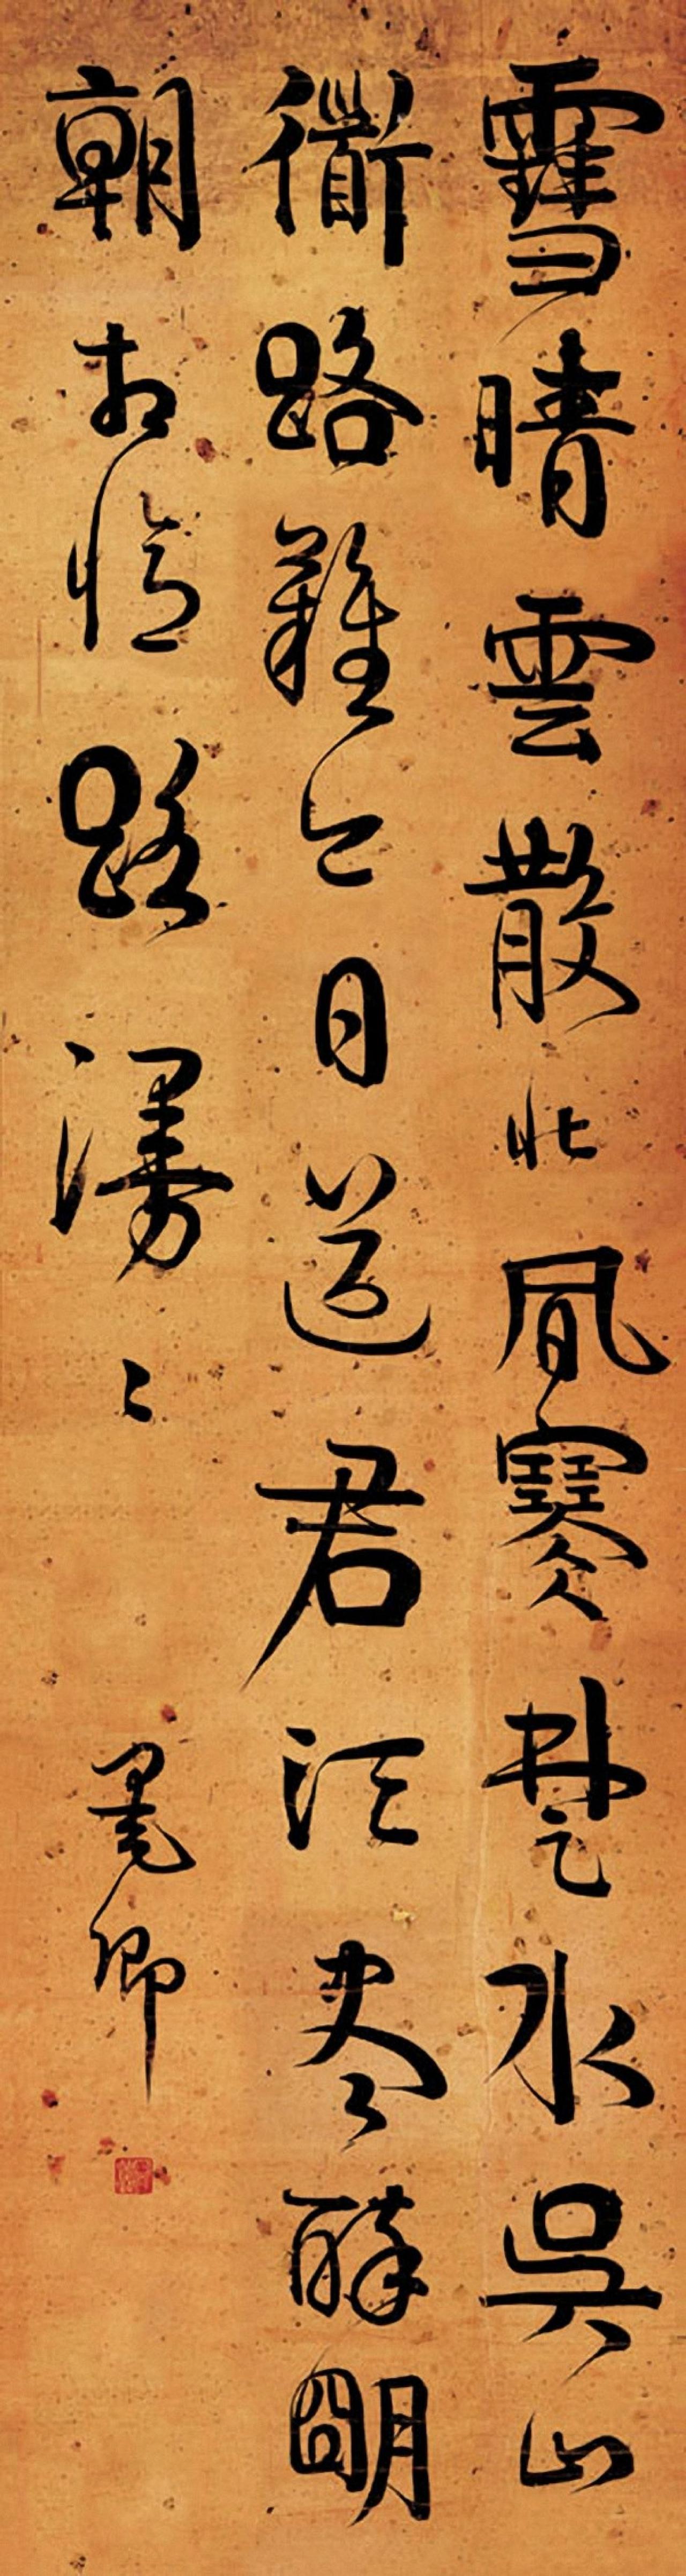 雪晴雲散北風寒楚水吳山
衜路難今日送君須盡醉朙
朝相憶路漫〻
卿